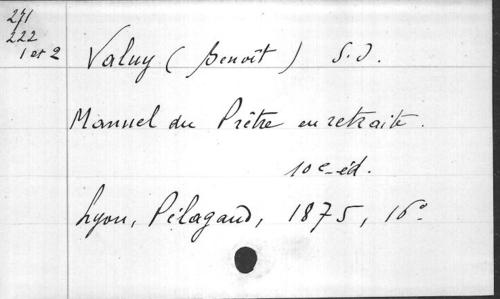 271
222
1 et 2
Valuy ( Benoît ) S.J.
Manuel du Prêtre en retraite.
10e éd.
Lyon, Pélagaud, 1875, 16°